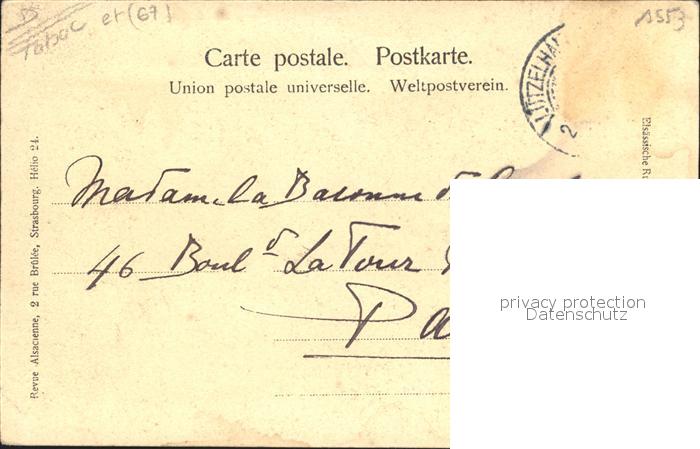 Tabac et (67)
1553
Carte postale. Postkarte.
Union postale universelle. Weltpostverein.
LÜTZELHA
2
Revue Alsacienne, 2 rue Brûlée, Strasbourg. Hélio 24.
Elsässische Ru
Madame la Baronne de
46 Boul d La Tour
Pa
privacy protection
Datenschutz